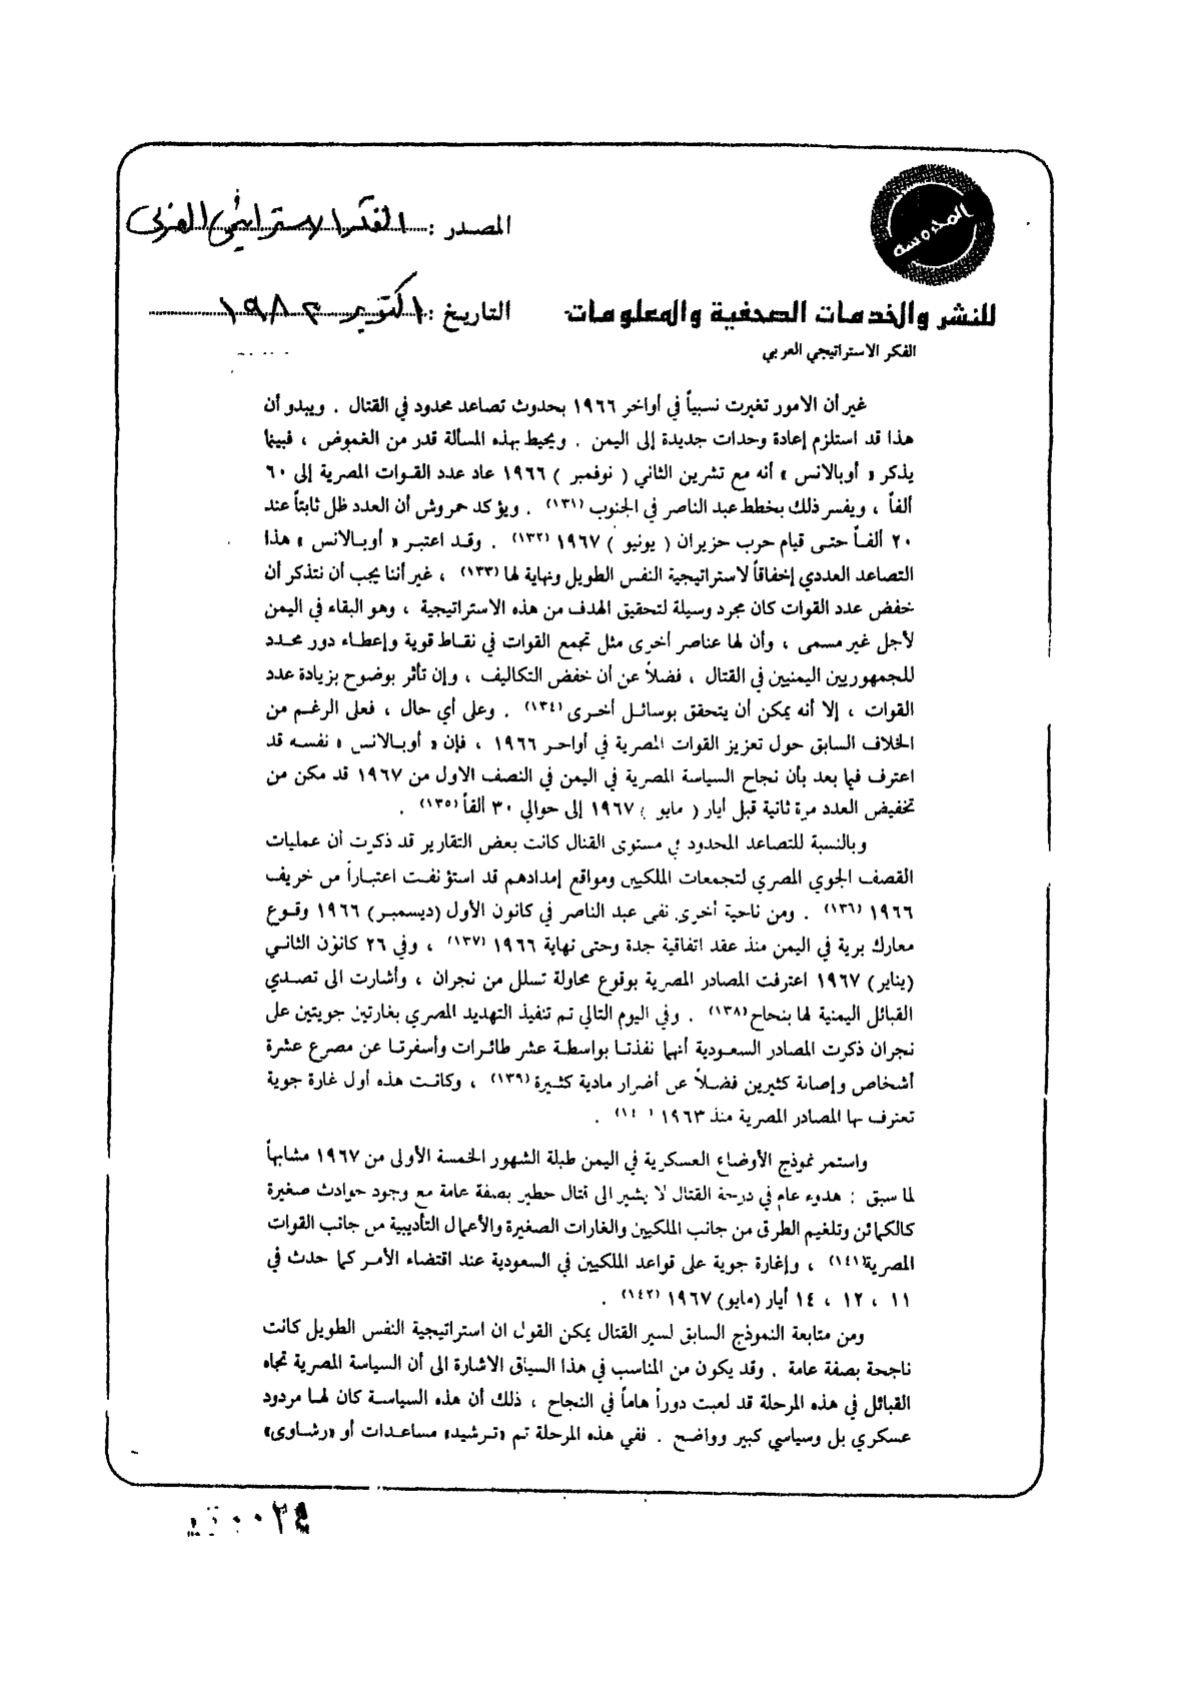 المحروسه
المصدر : الفكر الاستراتيجي العربي
للنشر والخدمات الصحفية والمعلومات
التاريخ : اكتوبر ١٩٨٣
الفكر الاستراتيجي العربي
غير أن الامور تغيرت نسبياً في أواخر ١٩٦٦ بحدوث تصاعد محدود في القتال . ويبدو أن
هذا قد استلزم إعادة وحدات جديدة إلى اليمن . ويحيط بهذه المسألة قدر من الغموض ، فبينما
يذكر « أوبالانس » أنه مع تشرين الثاني ( نوفمبر ) ١٩٦٦ عاد عدد القوات المصرية إلى ٦٠
ألفاً ، ويفسر ذلك بخطط عبد الناصر في الجنوب (١٣١) . ويؤكد حمروش أن العدد ظل ثابتاً عند
٢٠ ألفـاً حتـى قيام حرب حزيران ( يونيو ) ١٩٦٧ (١٣٢) . وقـد اعتبـر « أوبـالانس » هذا
التصاعد العددي إخفاقاً لاستراتيجية النفس الطويل ونهاية لها (١٣٣) ، غير أننا يجب أن نتذكر أن
خفض عدد القوات كان مجرد وسيلة لتحقيق الهدف من هذه الاستراتيجية ، وهو البقاء في اليمن
لأجل غير مسمى ، وأن لها عناصر أخرى مثل تجمع القوات في نقـاط قوية وإعطـاء دور محـدد
للجمهوريين اليمنيين في القتال ، فضلاً عن أن خفض التكاليف ، وإن تأثر بوضوح بزيادة عدد
القوات ، إلا أنه يمكن أن يتحقق بوسائـل أخـرى (١٣٤) . وعلى أي حال ، فعلى الرغـم من
الخلاف السابق حول تعزيز القوات المصرية في أواخـر ١٩٦٦ ، فإن « أوبـالانس » نفسـه قد
اعترف فيما بعد بأن نجاح السياسة المصرية في اليمن في النصف الاول من ١٩٦٧ قد مكن من
تخفيض العدد مرة ثانية قبل أيار ( مايو ) ١٩٦٧ إلى حوالي ٣٠ ألفاً (١٣٥) .
وبالنسبة للتصاعد المحدود في مستوى القتال كانت بعض التقارير قد ذكرت أن عمليات
القصف الجوي المصري لتجمعات الملكيين ومواقع إمدادهم قد استؤنفـت اعتبـاراً من خريف
١٩٦٦ (١٣٦) . ومن ناحية أخرى نفى عبد الناصر في كانون الأول (ديسمبـر) ١٩٦٦ وقـوع
معارك برية في اليمن منذ عقد اتفاقية جدة وحتى نهاية ١٩٦٦ (١٣٧) ، وفي ٢٦ كانون الثانـي
(يناير) ١٩٦٧ اعترفت المصادر المصرية بوقوع محاولة تسلل من نجران ، وأشارت الى تصـدي
القبائل اليمنية لها بنجاح (١٣٨) . وفي اليوم التالي تـم تنفيذ التهديد المصري بغارتين جويتين على
نجران ذكرت المصادر السعودية أنهما نفذتـا بواسطـة عشر طائـرات وأسفرتـا عن مصرع عشرة
أشخاص وإصابة كثيرين فضـلاً عن أضرار مادية كثـيرة (١٣٩) ، وكانـت هذه أول غارة جوية
تعترف بها المصادر المصرية منذ ١٩٦٣ (١٤٠) .
واستمر نموذج الأوضاع العسكرية في اليمن طيلة الشهور الخمسة الأولى من ١٩٦٧ مشابهاً
لما سبق : هدوء عام في درجة القتال لا يشير الى قتال خطير بصفة عامة مع وجود حوادث صغيرة
كالكمائن وتلغيم الطرق من جانب الملكيين والغارات الصغيرة والأعمال التأديبية من جانب القوات
المصرية (١٤١) ، وإغارة جوية على قواعد الملكيين في السعودية عند اقتضاء الأمـر كما حدث في
١١ ، ١٢ ، ١٤ أيار (مايو) ١٩٦٧ (١٤٢) .
ومن متابعة النموذج السابق لسير القتال يمكن القول ان استراتيجية النفس الطويل كانت
ناجحة بصفة عامة . وقد يكون من المناسب في هذا السياق الاشارة الى أن السياسة المصرية تجاه
القبائل في هذه المرحلة قد لعبت دوراً هاماً في النجاح ، ذلك أن هذه السياسـة كان لهـا مردود
عسكري بل وسياسي كبير وواضـح . ففي هذه المرحلة تـم «تـرشيد» مساعـدات أو «رشـاوى»